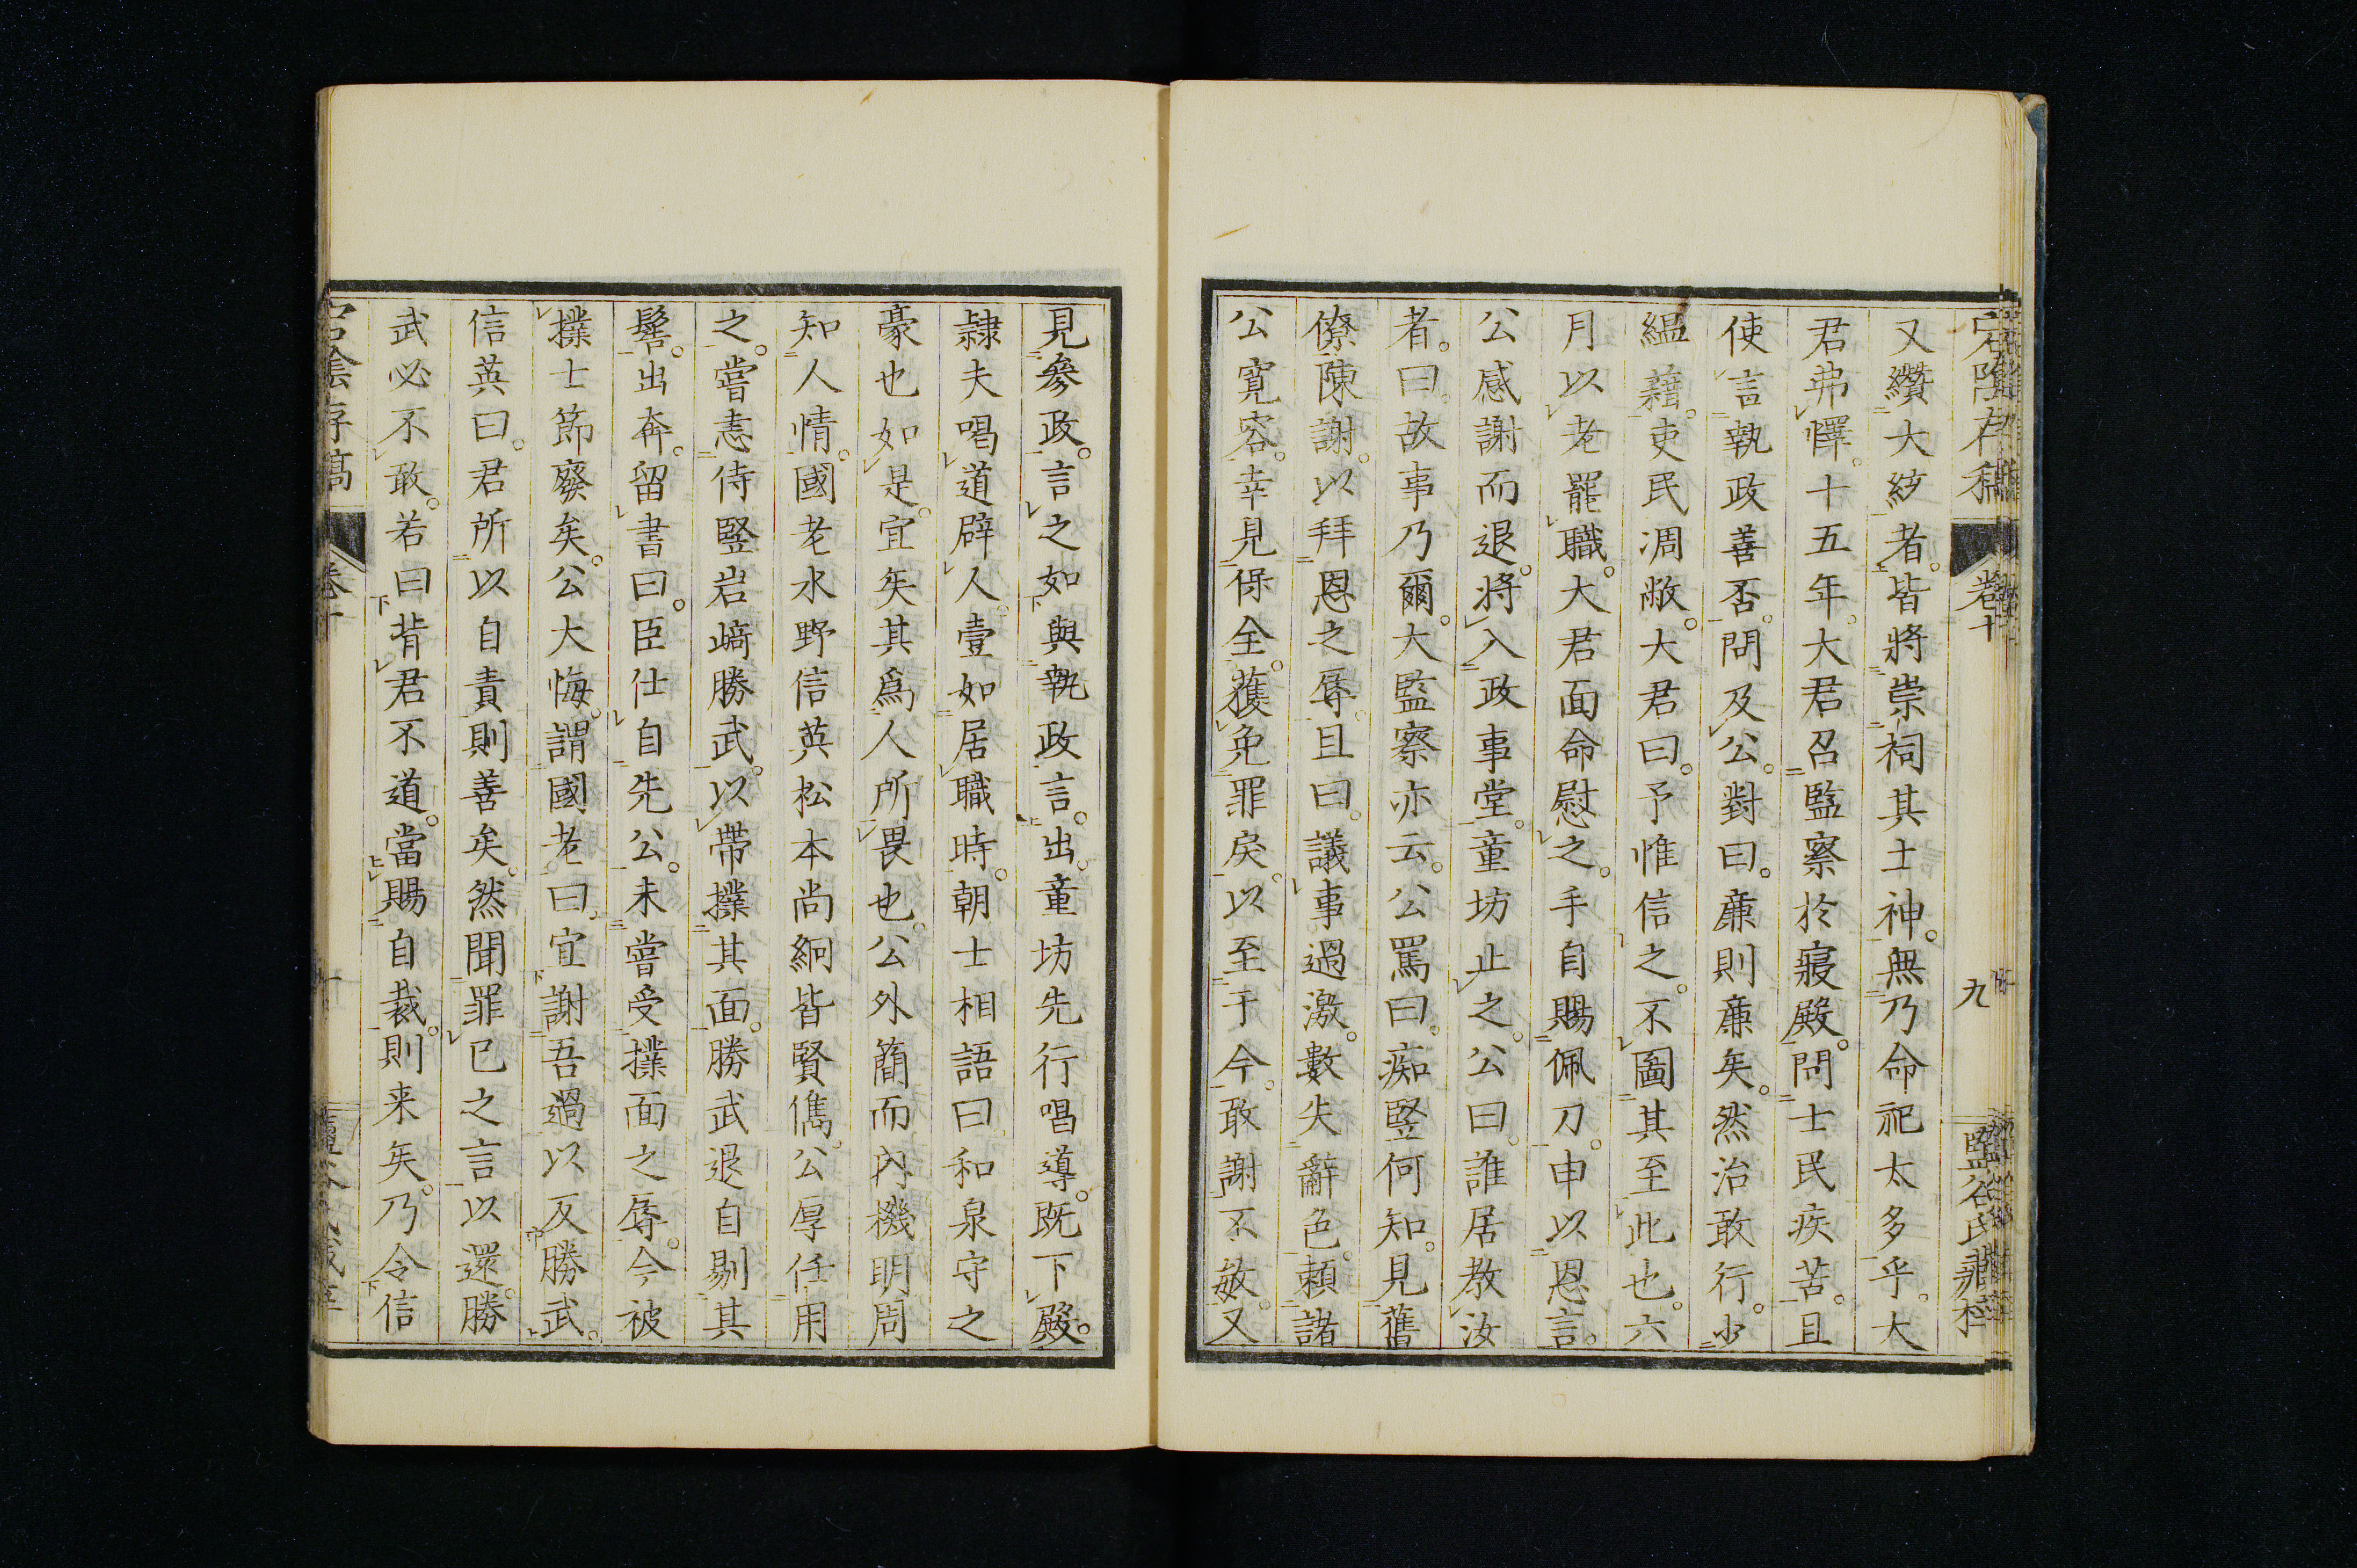 宕陰存稿 卷十 九
又纘大統者。皆將崇祠其土神。無乃命祀太多乎。大
君弗懌。十五年。大君召監察於寢殿。問士民疾苦。且
使言執政善否。問及公。對曰。廉則廉矣。然治敢行。少
緼藉。吏民凋敝。大君曰。予惟信之。不圖其至此也。六
月以老罷職。大君面命慰之。手自賜佩刀。申以恩言。
公感謝而退。將入政事堂。童坊止之。公曰。誰居教汝
者。曰。故事乃爾。大監察亦云。公罵曰。痴豎何知。見舊
僚陳謝。以拜恩之辱。且曰。議事過激。數失辭色。賴諸
公寬容。幸見保全。獲免罪戾。以至于今。敢謝不敏。又
見參政。言之如與執政言。出。童坊先行唱導。既下殿。
隷夫唱道辟人。壹如居職時。朝士相語曰。和泉守之
豪也如是。宜矣其爲人所畏也。公外簡而內機明周
知人情。國老水野信英松本尚絅皆賢儁。公厚任用
之。嘗恚侍豎岩﨑勝武。以帶撲其面。勝武退自剔其
髻。出奔。留書曰。臣仕自先公。未嘗受撲面之辱。今被
撲士節廢矣。公大悔。謂國老曰。宜謝吾過以反勝武。
信英曰。君所以自責則善矣。然聞罪已之言以還。勝
武必不敢。若曰背君不道。當賜自裁。則来矣。乃令信
宕陰存稿 卷十